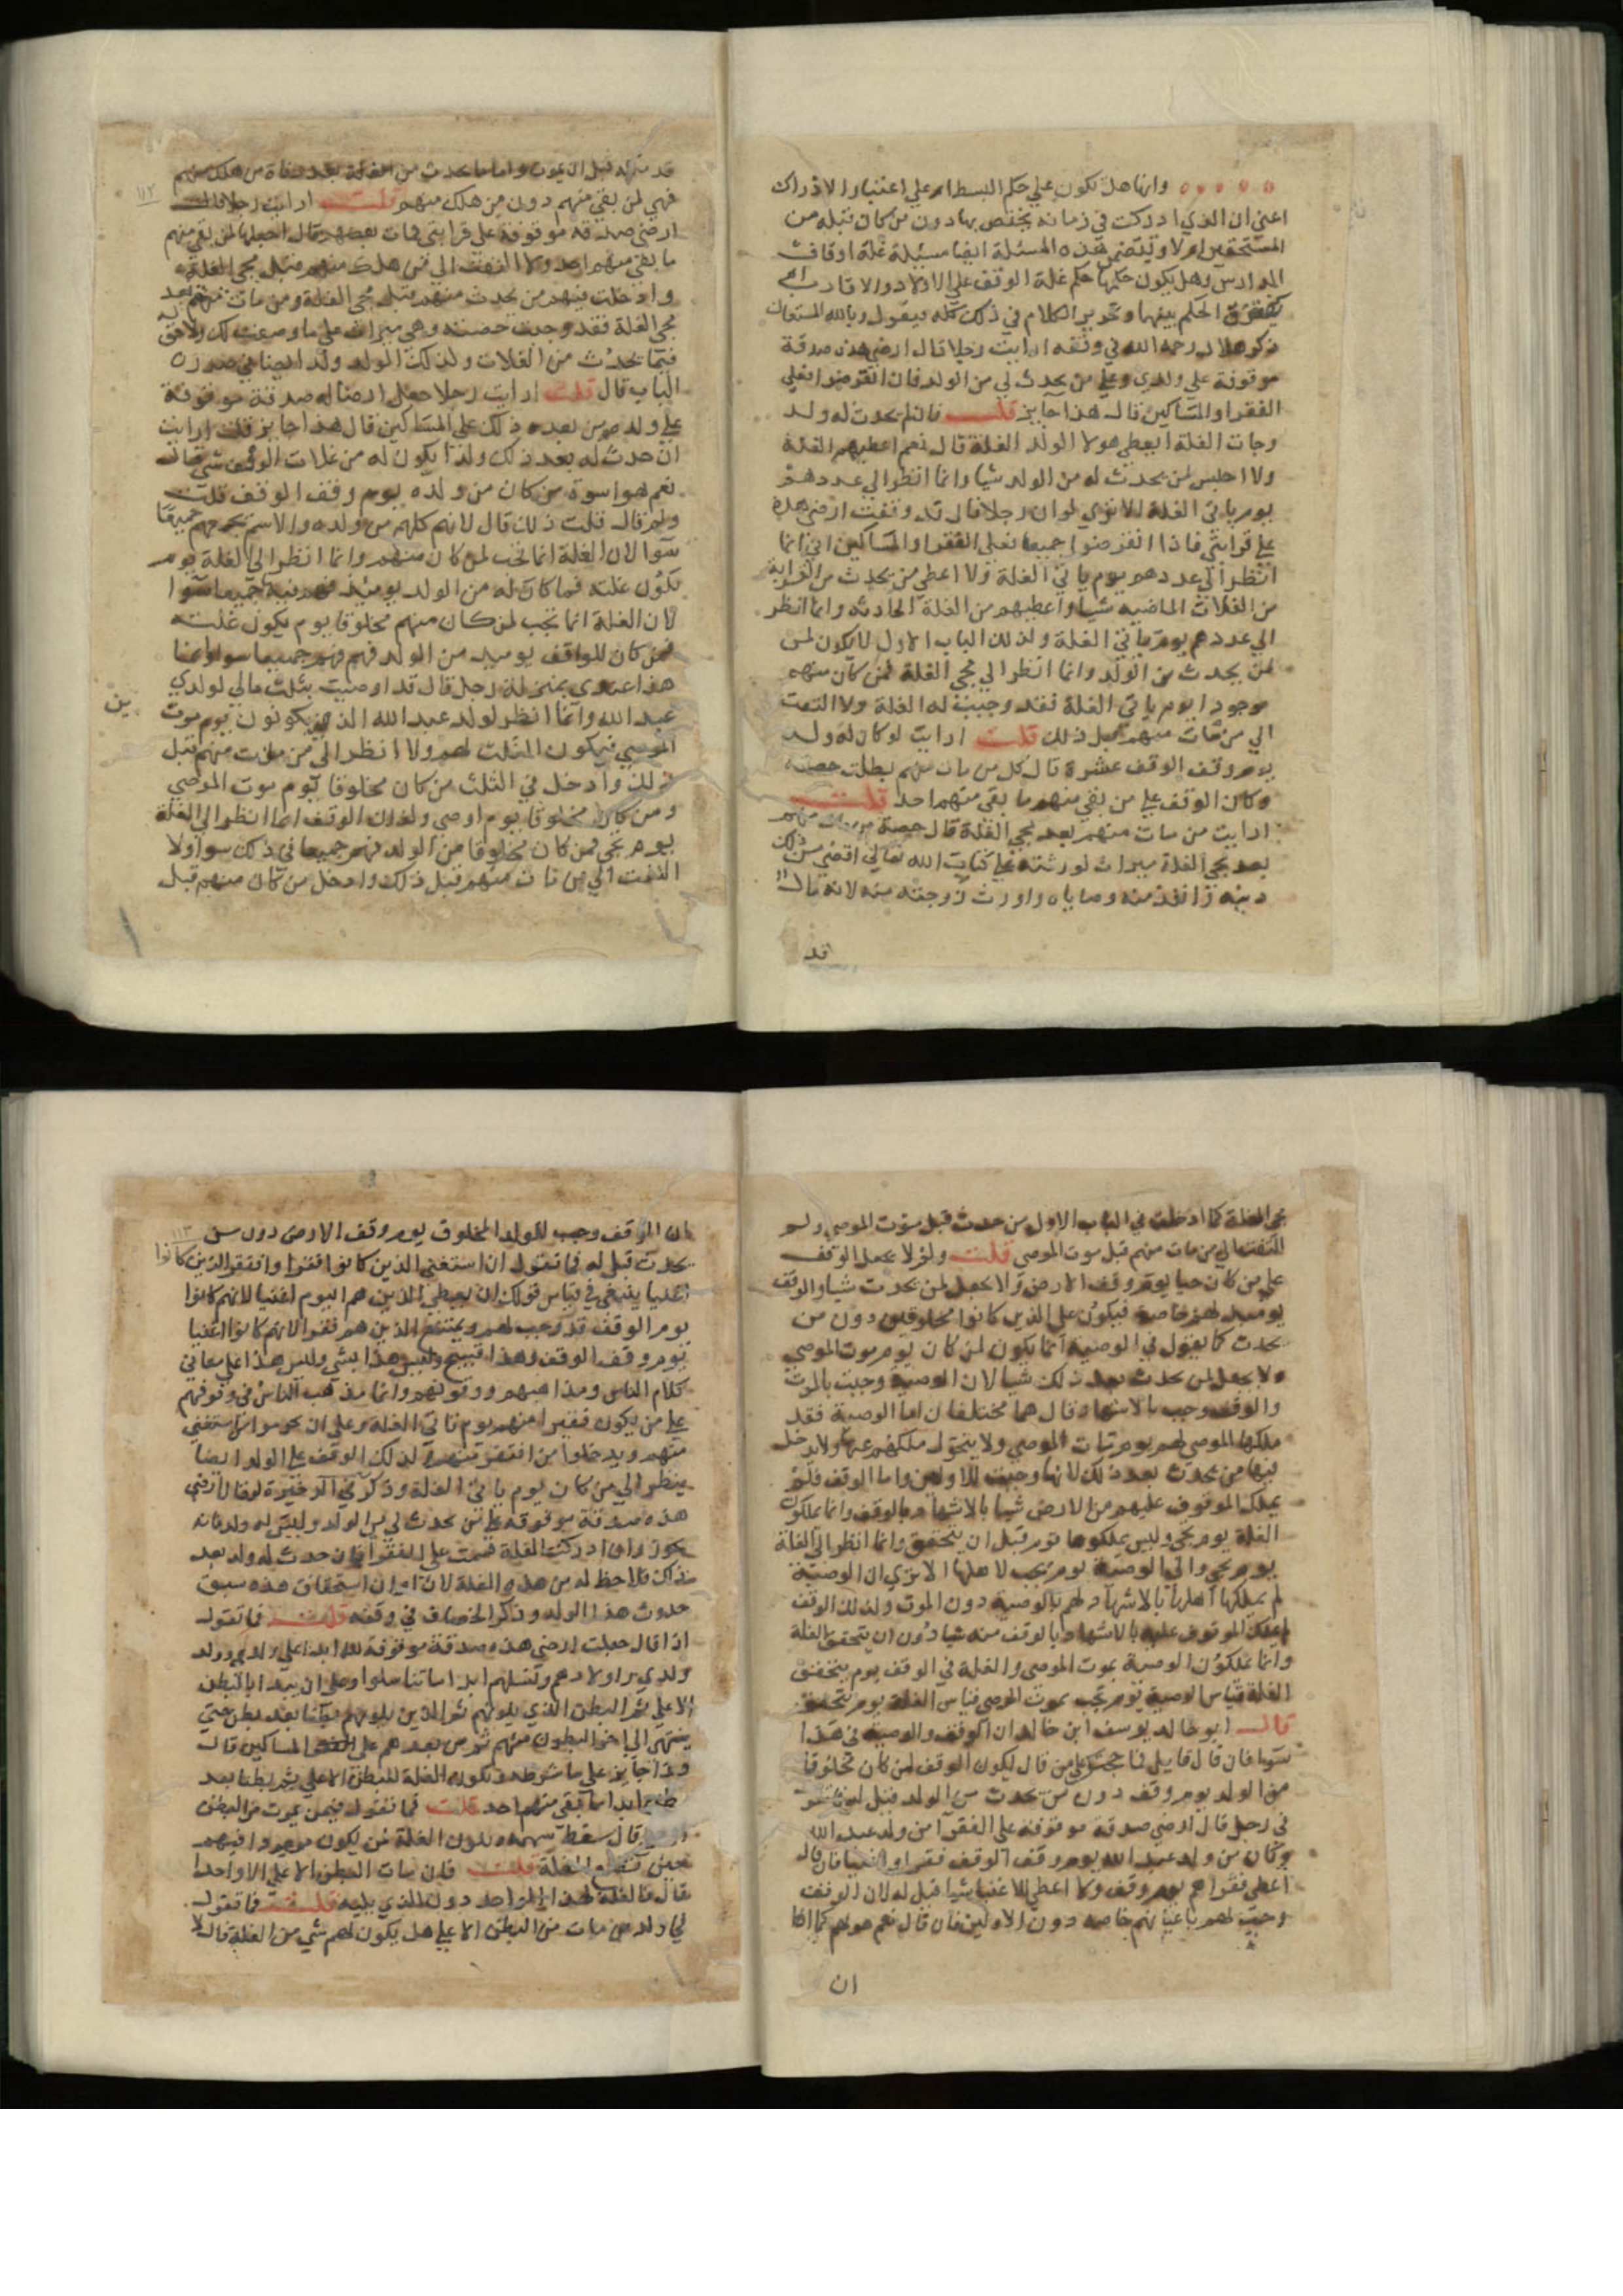 وانها هل تكون علي حكم البسط ام علي اعتبار الادراك
اعني ان الذي ادركت في زمانه يختص بها دون من كان قبله من
المستحقين ام لا ويتضمن هذه المسئلة ايضا مسئلة غلة اوقاف
المدارس وهل يكون حكمها حكم غلة الوقف علي الاولاد والاقارب ام
يفترق الحكم بينهما وتحرير الكلام في ذلك كله فيقول وبالله المستعان
ذكر هلال رحمه الله في وقفه ارايت رجلا قال ارضي هذه صدقة
موقوفة علي ولدي وعلي من يحدث لي من الولد فان انقرضوا فعلي
الفقرا والمساكين قال هذا جايز قلت فان لم يحدث له ولد
وجات الغلة ايعطي هولا الولد الغلة قال نعم اعطيهم الغلة
ولا احبس لمن يحدث له من الولد شيا وانما انظر الي عددهم
يوم ياتي الغلة الا تري لو ان رجلا قال قد وقفت ارضي هذه
علي قرابتي فاذا انقرضوا جميعا فعلي الفقرا والمساكين اني انما
انظر الي عددهم يوم ياتي الغلة ولا اعطي من يحدث من القرابة
من الغلات الماضيه شيا واعطيهم من الغلة الحادثه وانما انظر
الي عددهم يوم ياتي الغلة وكذلك الباب الاول لا يكون لمن
لمن يحدث من الولد وانما انظر الي مجي الغلة فمن كان منهم
موجودا يوم ياتي الغلة فقد وجبت له الغلة ولا التفت
الي من مات منهم قبل ذلك قلت ارايت لو كان له ولد
يوم وقف الوقف عشرة قال كل من مات منهم بطلت حصته
وكان الوقف علي من بقي منهم ما بقي منهم احد قلت
ارايت من مات منهم بعد مجي الغلة قال حصة من مات منهم
بعد مجي الغلة ميراث لورثته علي كتاب الله تعالي اقضي من ذلك
دينه وانفذ منه وصاياه واورث زوجته منه لانه مال
قد
١١٢
قد ملكه قبل ان يموت واما ما يحدث من الغلة بعد وفاة من هلك منهم
فهي لمن بقي منهم دون من هلك منهم قلت ارايت رجلا قال
ارضي صدقة موقوفة علي قرابتي فمات بعضهم قال اجعلها لمن بقي منهم
ما بقي منهم احد ولا التفت الي من هلك منهم قبل مجي الغلة
وادخلت فيهم من يحدث منهم قبل مجي الغلة ومن مات منهم بعد
مجي الغلة فقد وجبت حصته وهي ميراث علي ما وصفت لك ولا حق له
فيما يحدث من الغلات وكذلك الولد
الباب قال قلت ارايت رجلا جعل ارضا له صدقة موقوفة
علي ولده ومن بعده ذلك علي المساكين قال هذا جايز قلت ارايت
ان حدث له بعد ذلك ولد ايكون له من غلات الوقف شي قال
نعم هو اسوة من كان من ولده يوم وقف الوقف قلت
ولم قال قلت ذلك قال لانهم كلهم من ولده والاسم يجمعهم جميعا
سوا لان الغلة انما تجب لمن كان منهم وانما انظر الي الغلة يوم
تكون غلته فما كان له من الولد يوميذ فهم فيه جميعا سوا
لان الغلة انما تجب لمن كان منهم مخلوقا يوم يكون غلته
فمن كان للواقف يوميذ من الولد فهم فيه جميعا سوا وانما
هذا عندي بمنزلة رجل قال قد اوصيت بثلث مالي لولدي
عبد الله وانما انظر لولد عبد الله الذين يكونون يوم موت
الموصي فيكون الثلث لهم ولا انظر الي من مات منهم قبل
ذلك وادخل في الثلث من كان مخلوقا يوم موت الموصي
ومن كان مخلوقا يوم اوصي وكذلك الوقف انما انظر الي الغلة
يوم تجي فمن كان مخلوقا من الولد فهم جميعا في ذلك سوا ولا
التفت الي من مات منهم قبل ذلك وادخل من كان منهم قبل
ين
مجي الغلة كما ادخلت في الباب الاول من حدث قبل موت الموصي ولم
التفت الي من مات منهم قبل موت الموصي قلت ولم لا يجعل الوقف
علي من كان حيا يوم وقف الارض ولا يجعل لمن يحدث شيا والوقف
يوميذ لهم خاصة فيكون علي الذين كانوا مخلوقين دون من
يحدث كما يقول في الوصية انما يكون لمن كان يوم موت الموصي
ولا يجعل لمن يحدث بعد ذلك شيا لان الوصية وجبت بالموت
والوقف وجب بالاشهاد قال هما مختلفان اما الوصية فقد
ملكها الموصي لهم يوم مات الموصي ولا يتحول ملكهم عنها ولا يدخل
فيها من يحدث بعد ذلك لانها وجبت للاولين واما الوقف فلم
يملك الموقوف عليهم من الارض شيا بالاشهاد بالوقف وانما يملكون
الغلة يوم تجي وليس يملكوها يوم قبل ان يتحقق وانما انظر الي الغلة
يوم تجي والي الوصية يوم تجب لاهلها الا تري ان الوصية
لم يملكها اهلها بالاشهاد لهم بالوصية دون الموت وكذلك الوقف
لم يملك الموقوف عليه بالاشهاد بالوقف منه شيا دون ان يتحقق الغلة
وانما يملكون الوصية بموت الموصي والغلة في الوقف يوم يتحقق
الغلة قياس الوصية يوم تجب بموت الموصي قياس الغلة يوم يتحقق
قال ابو خالد يوسف ابن خالد ان الوقف والوصية في هذا
سوا فان قال قايل فما حجتك علي من قال يكون الوقف لمن كان مخلوقا
من الولد يوم وقف دون من يحدث من الولد قيل له
في رجل قال ارضي صدقة موقوفة علي الفقرا من ولد عبد الله
وكان من ولد عبد الله يوم وقف الوقف فقرا واغنيا فان قال
اعطي فقراهم يوم وقف ولا اعطي الاغنيا شيا قيل له لان الوقف
وجب لهم باعيانهم خاصه دون الاولين فان قال نعم هو لهم كما
ان
١١٣
ان الوقف وجب للولد المخلوق يوم وقف الارض دون من
يحدث قيل له فما تقول ان استغني الذين كانوا فقرا وافتقر الذين كانوا
اغنيا ينبغي في قياس قولك ان يعطي الذين هم اليوم اغنيا لانهم كانوا
يوم الوقف قد وجب لهم ويمتنع الذين هم فقرا لانهم كانوا اغنيا
يوم وقف الوقف وهذا قبيح وليس هذا بشي وليس هذا علي معاني
كلام الناس ومذاهبهم ووقوفهم وانما مذهب الناس في وقوفهم
علي من يكون فقيرا منهم يوم تاتي الغلة وعلي ان يحرموا من استغني
منهم ويدخلوا من افتقر منهم كذلك الوقف علي الولد ايضا
ينظر الي من كان يوم ياتي الغلة وذكر في الذخيرة لو قال ارضي
هذه صدقة موقوفة علي من يحدث لي من الولد وليس له ولد فانه
يجوز واذا ادركت الغلة قسمت علي الفقرا فان حدث له ولد بعد
ذلك فلا حظ له من هذه الغلة لان اوان استحقاق هذه سبق
حدوث هذا الولد وذكر الخصاف في وقفه قلت فما تقول
اذا قال جعلت ارضي هذه صدقة موقوفة لله ابدا علي ولدي وولد
ولدي واولادهم ونسلهم ابدا ما تناسلوا وعلي ان يبدا بالبطن
الاعلي ثم البطن الذي يلونهم ثم الذين يلونهم بطنا بعد بطن حتي
ينتهي الي اخر البطون منهم ثم من بعدهم علي المساكين قال
هذا جايز علي ما شرطه وتكون الغلة للبطن الاعلي ثم بطنا بعد
بطن ابدا ما بقي منهم احد قلت فما تقول فيمن يموت من البطن
قال سقط سهمه وتكون الغلة لمن يكون موجودا فيهم
حين تقع الغلة قلت فان مات البطن الاعلي الا واحدا
قال فالغلة لهذا الواحد دون الذي يليه قلت فما تقول
في ولد من مات من البطن الاعلي هل يكون لهم شي من الغلة قال لا